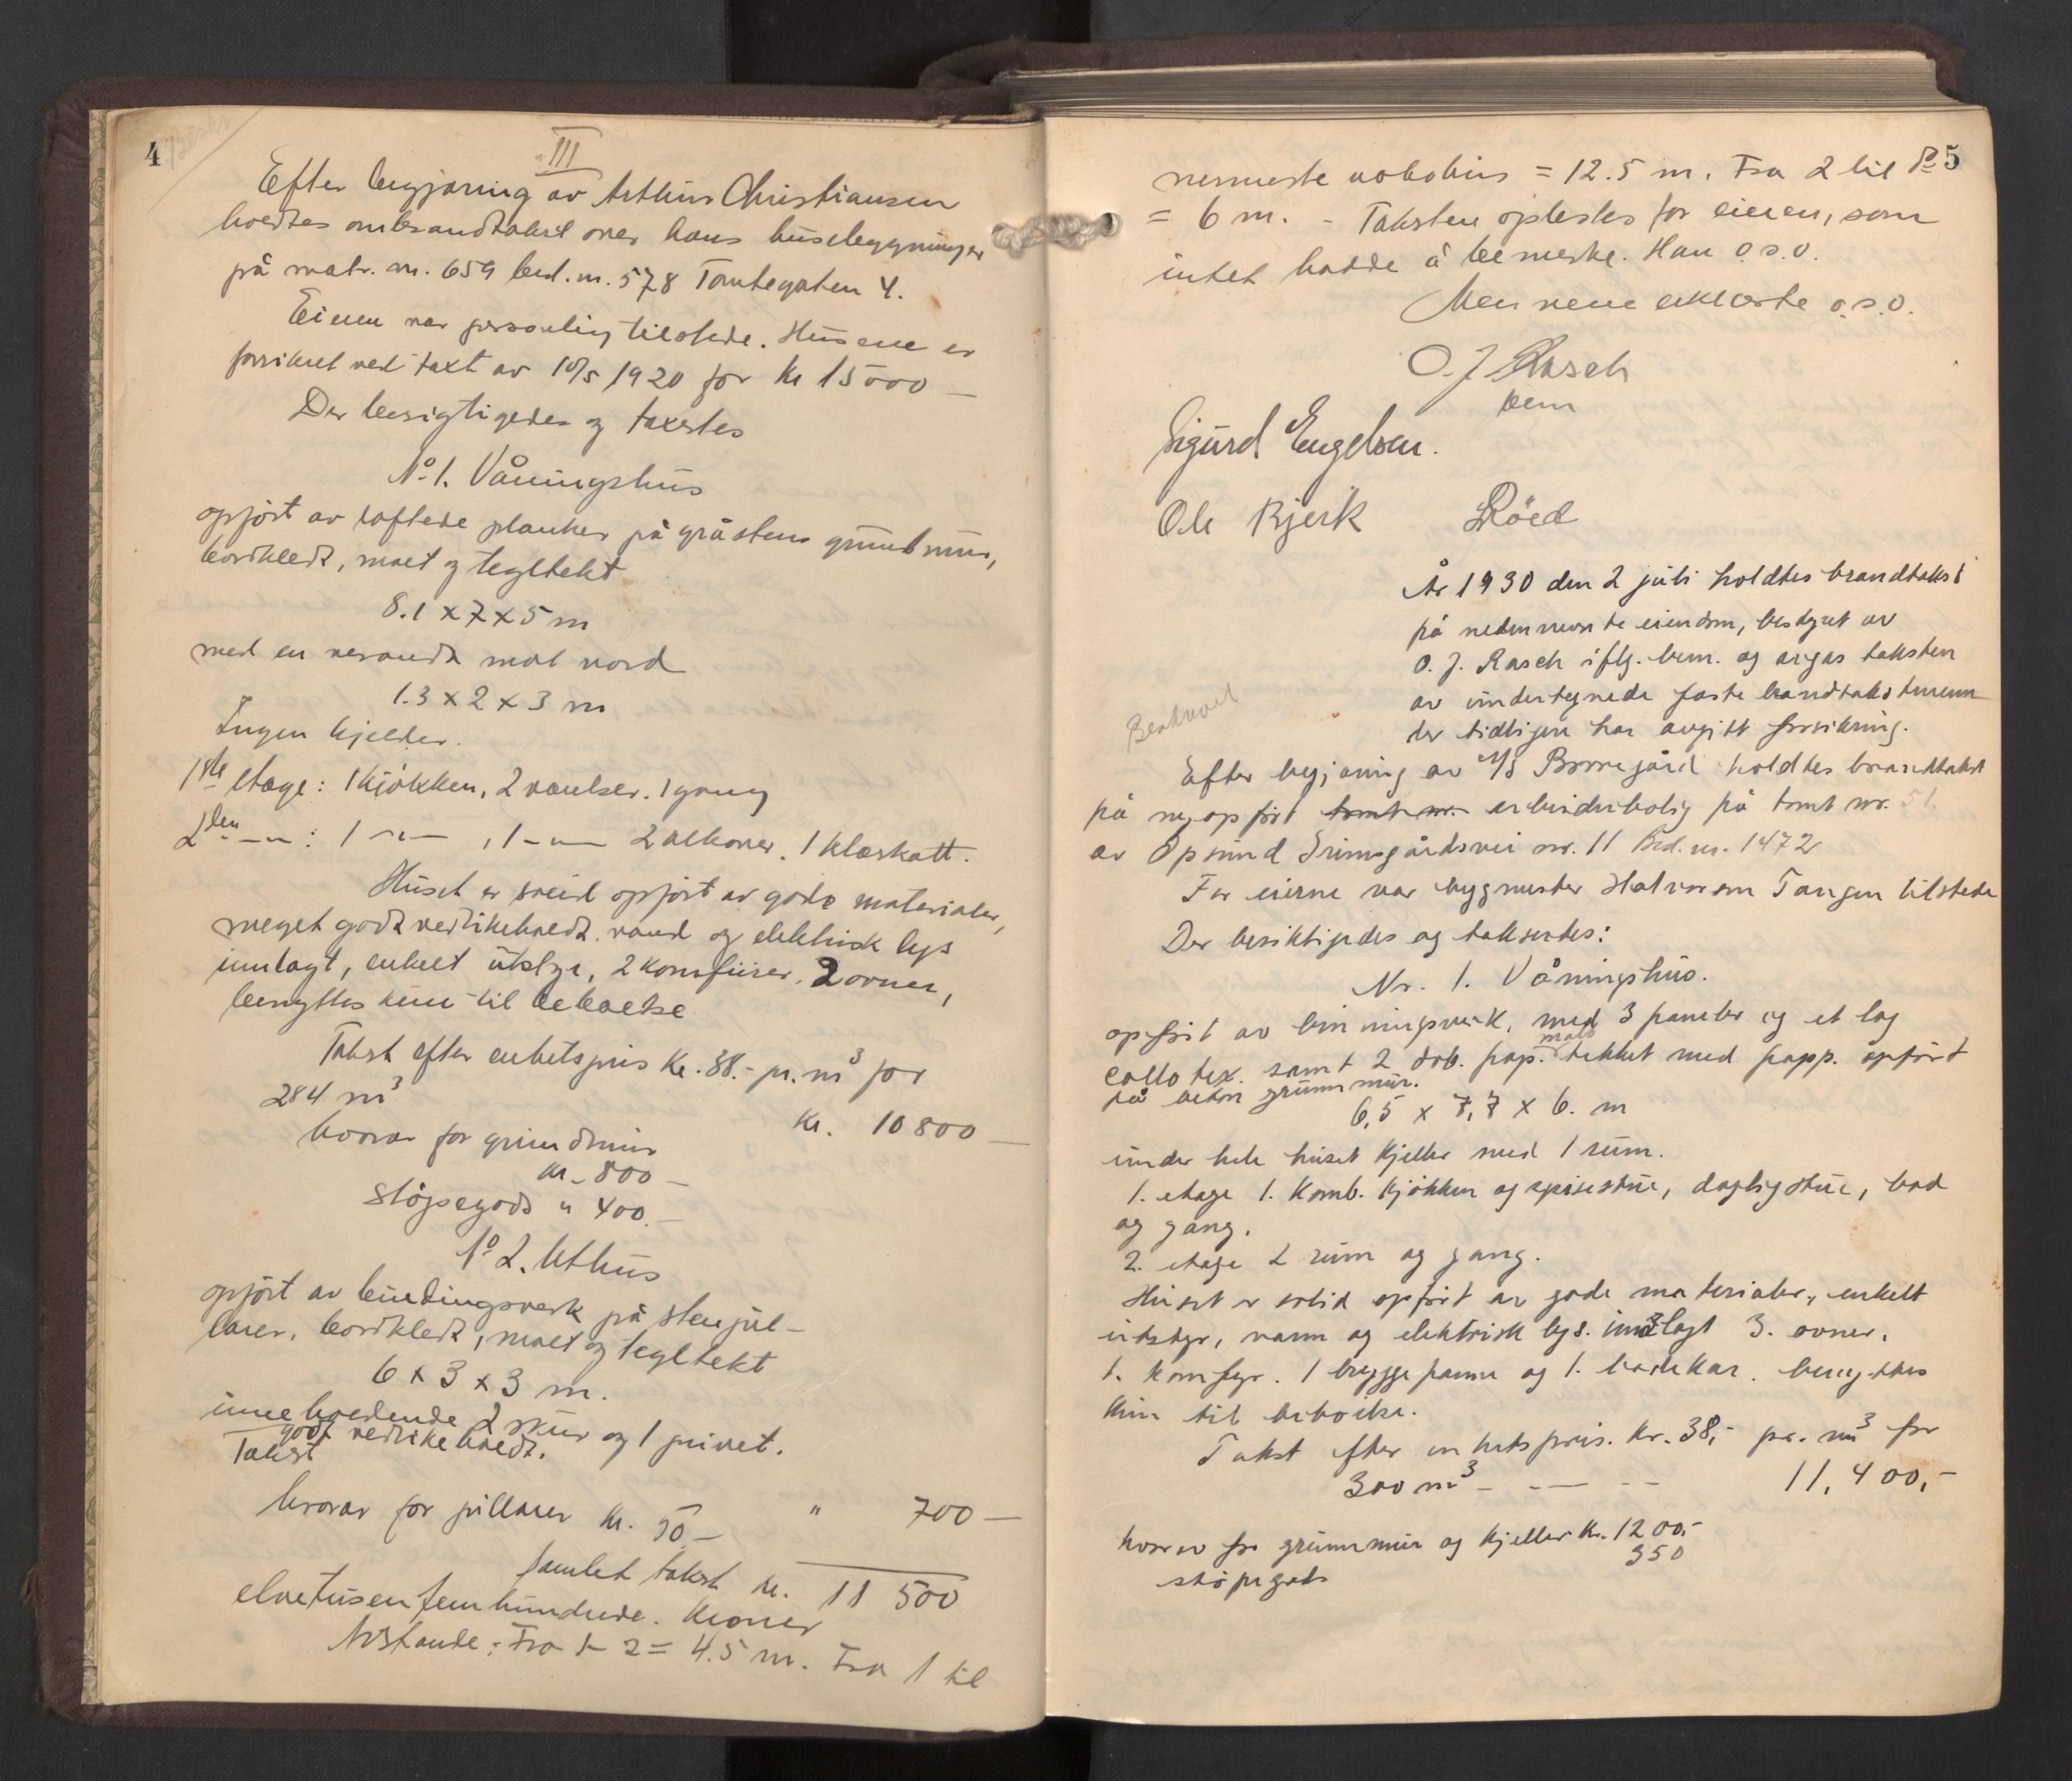 4
III
Efter begjæring av Arthur Christiansen
holdtes ombrandtakst over hans husebygninger
på matr. nr. 659 brd. nr. 578 Tomtegaten 4.
Eieren var personlig tilstede. Husene er
forsikret ved taxt av 10/5 1920 for kr 15000 —
Der besigtigedes og taxertes
No 1. Våningshus
opført av laftede planker på gråstens grundmur,
bordkledt, malt og tegltekt
8.1 x 7 x 5 m
med en veranda mot nord
1.3 x 2 x 3 m
Ingen kjelder.
1ste etage: 1 kjøkken, 2 værelser. 1 gang
2den —"— : 1 —"— , 1 —"— 2 alkover. 1 klæskott.
Huset er solid opført av gode materialer,
meget godt vedlikeholdt. vand og elektrisk lys
innlagt, enkelt utstyr, 2 komfurer. 2 ovner,
benyttes kun til beboelse
Takst efter enhetspris kr. 38.- pr. m3 for
284 m3
kr. 10800 —
hvorav for grundmur
kr. 800 —
støpegods " 400.—
No 2. Uthus
opført av bindingsverk på stenpil-
larer. bordkledt, malt og tegltekt
6 x 3 x 3 m.
inneholdende 2 skur og 1 privet.
godt vedlikeholdt.
Takst
" 700 —
hvorav for pillarer kr. 50.—
Samlet takst kr. 11 500
elvetusenfemhundrede. kroner
Avstande: Fra 1 - 2 = 4.5 m. Fra 1 til
5
nermeste nabohus = 12.5 m. Fra 2 til do
= 6 m. - Taksten oplestes for eieren, som
intet hadde å bemerke. Han o.s.v.
Mennene erklærte o.s.v.
O. J. Rasch
bem
Sigurd Engelsen.
Ole Bjerk Röed
År 1930 den 2 juli holdtes brandtakst
på nedennevnte eiendom, bestyret av
O. J. Rasch iflg. bem. og avgas taksten
av undertegnede faste brandtakstmenn
der tidligere har avgitt forsikring.
Efter begjæring av A/S Borregård holdtes brandtakst
på nyopført tomt nr. arbeiderbolig på tomt nr. 51.
av Opsund Grimsgårdsvei nr. 11 Brd. nr. 1472
For eierne var bygmester Halvorsen Tangen tilstede
Der besiktigedes og taksertes:
Nr. 1. Våningshus.
opført av binningsverk, med 3 paneler og et lag
collotex. samt 2 dob. pap. malt tekket med papp. opført
på beton grunnmur.
6,5 x 7,7 x 6. m
under hele huset kjeller med 1 rum.
1. etage 1. komb. kjøkken og spisestue, dagligstue, bad
og gang.
2. etage 2 rum og gang.
Huset er solid opført av gode materialer, enkelt
utstyr, vann og elektrisk lys. innlagt 3. ovner.
1. komfyr. 1 bryggepanne og 1. badekar. benyttes
kun til beboelse.
Takst efter enhetspris. kr. 38,- pr. m3 for
300 m3 - - — - - 11,400,-
hvorav for grunnmur og kjeller kr. 1200.-
støpegods 350